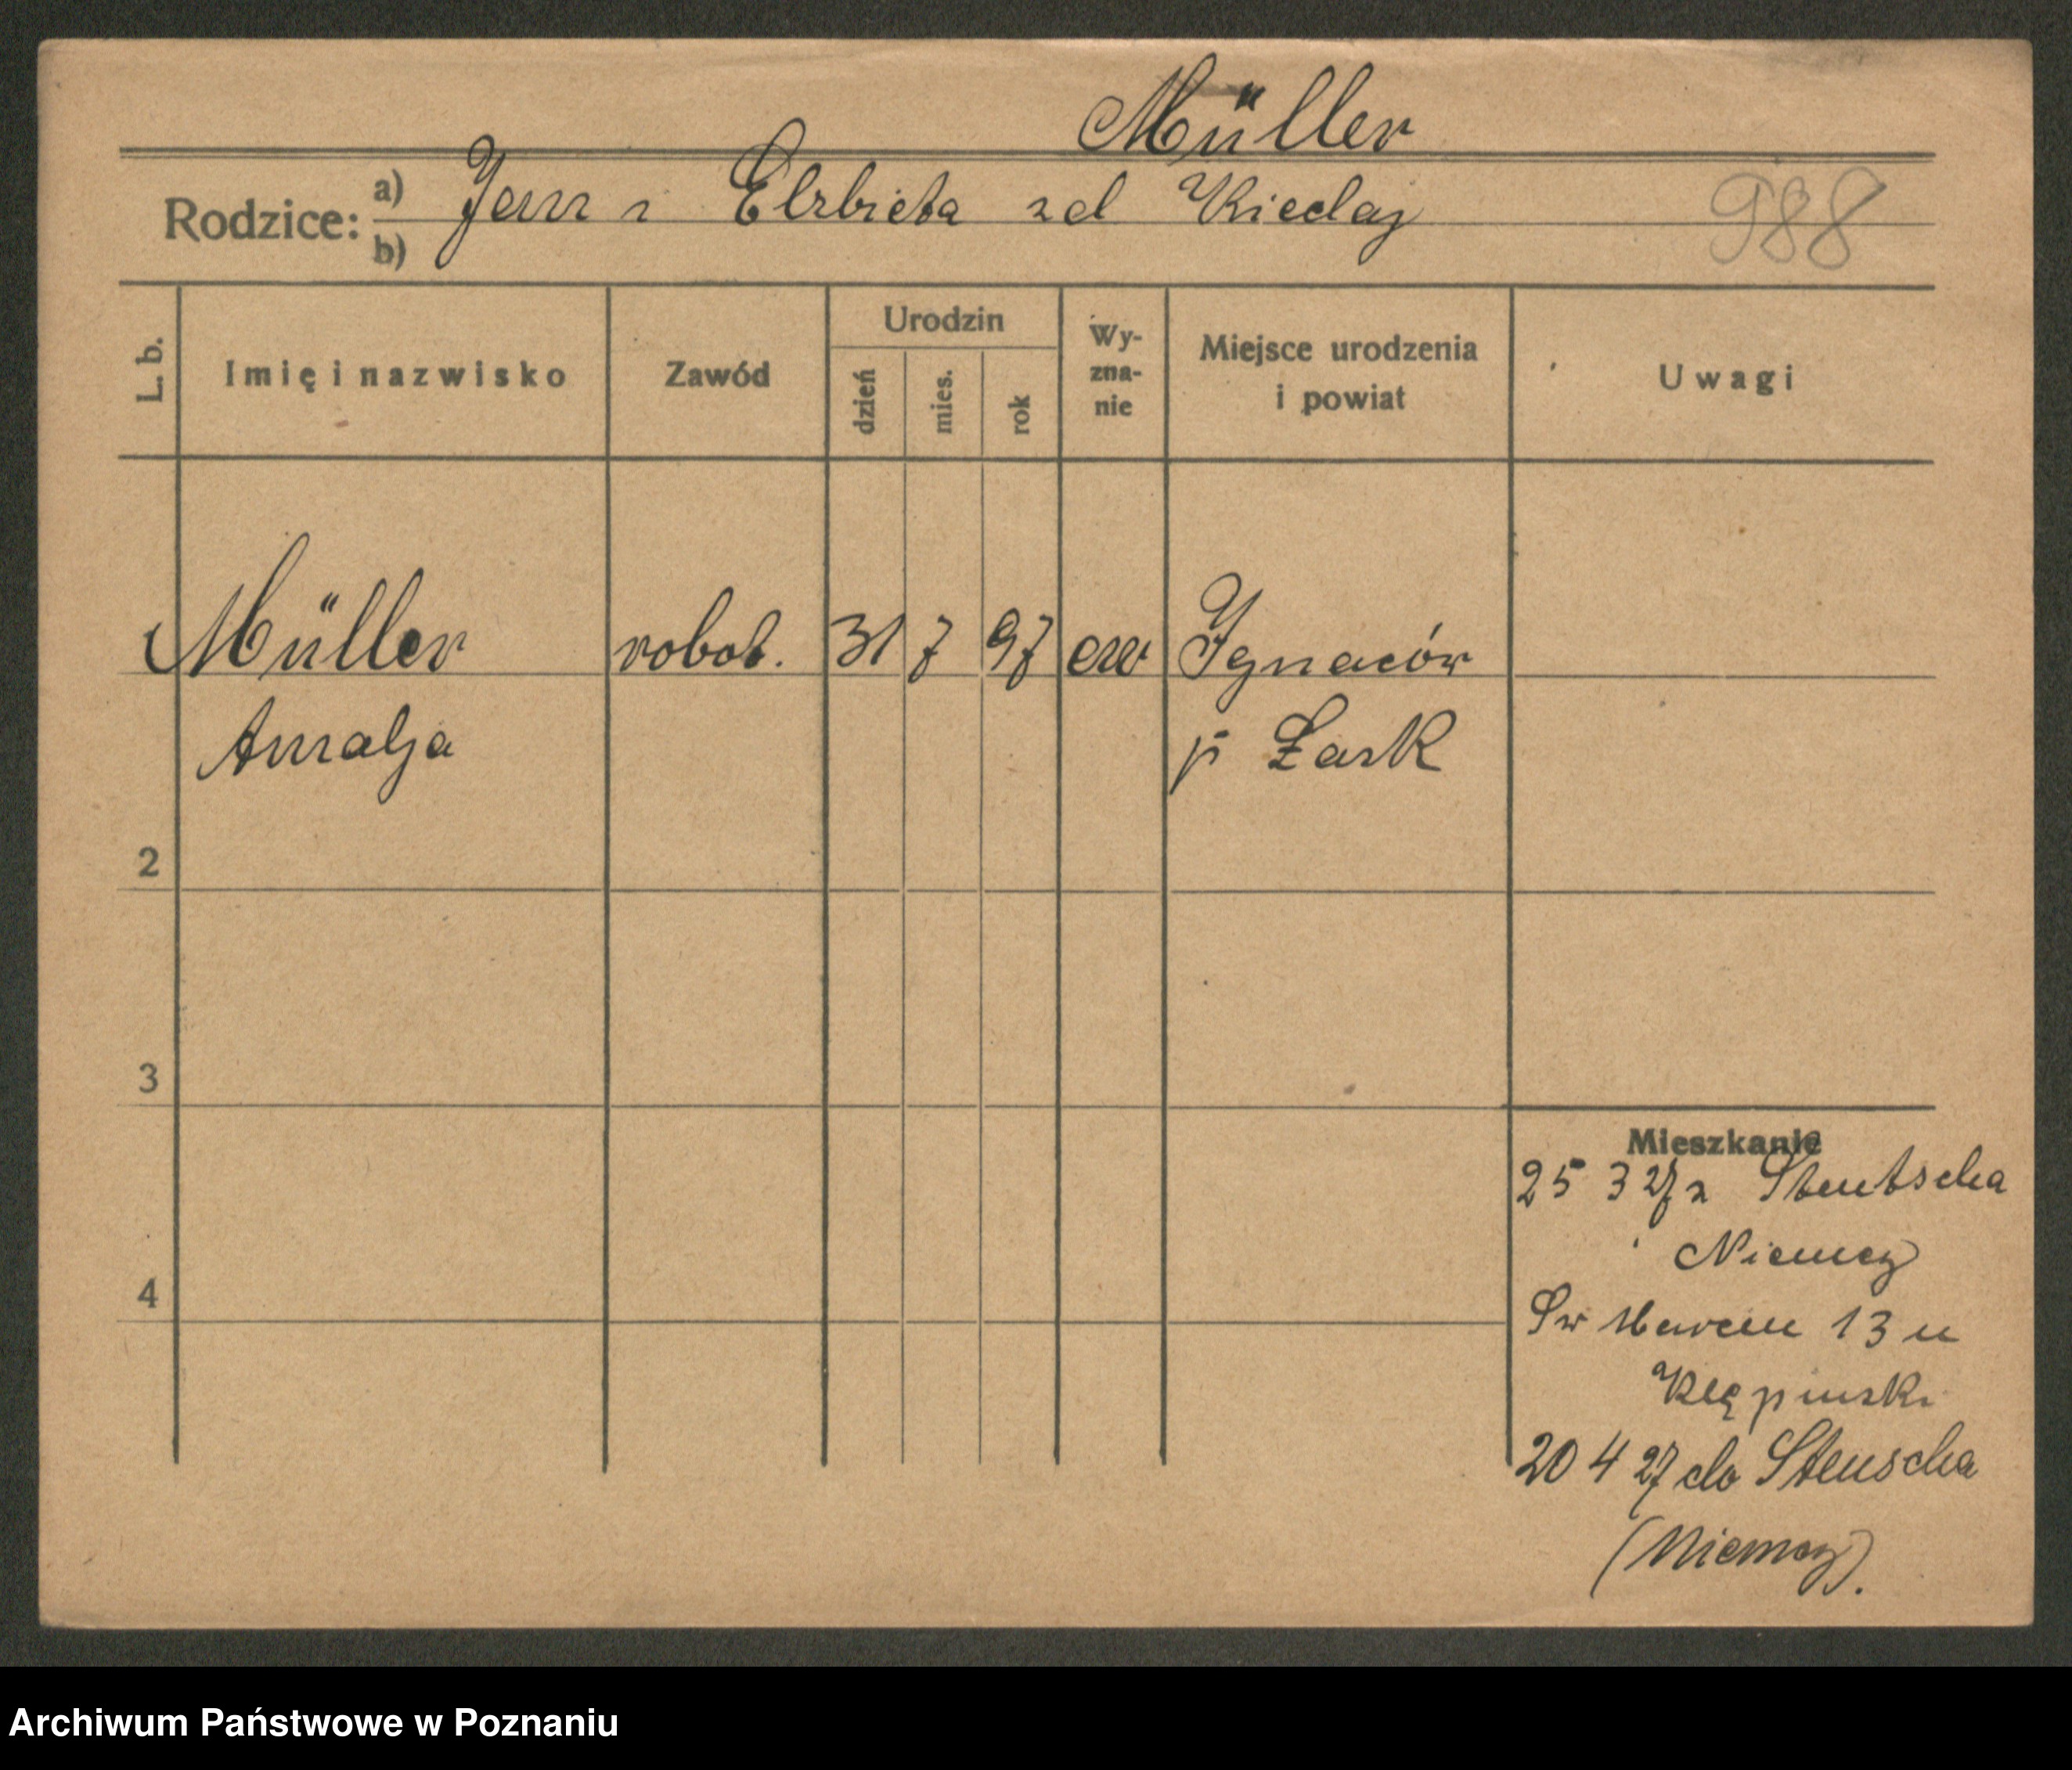 Müller
Rodzice: a) Jan i Elzbieta zd Kiedaj
b)
988
L. b.
Imię i nazwisko
Zawód
Urodzin
dzień
mies.
rok
Wy-
zna-
nie
Miejsce urodzenia
i powiat
Uwagi
1 Müller robot. 31 7 97 ew Ignaców
Amalja p Łask
2
3
4
Mieszkanie
25 3 27 z Stentscha
Niemcy
Sw Marcin 13 u
Klępinski
20 4 27 do Stenscha
(Niemcy).
Archiwum Państwowe w Poznaniu